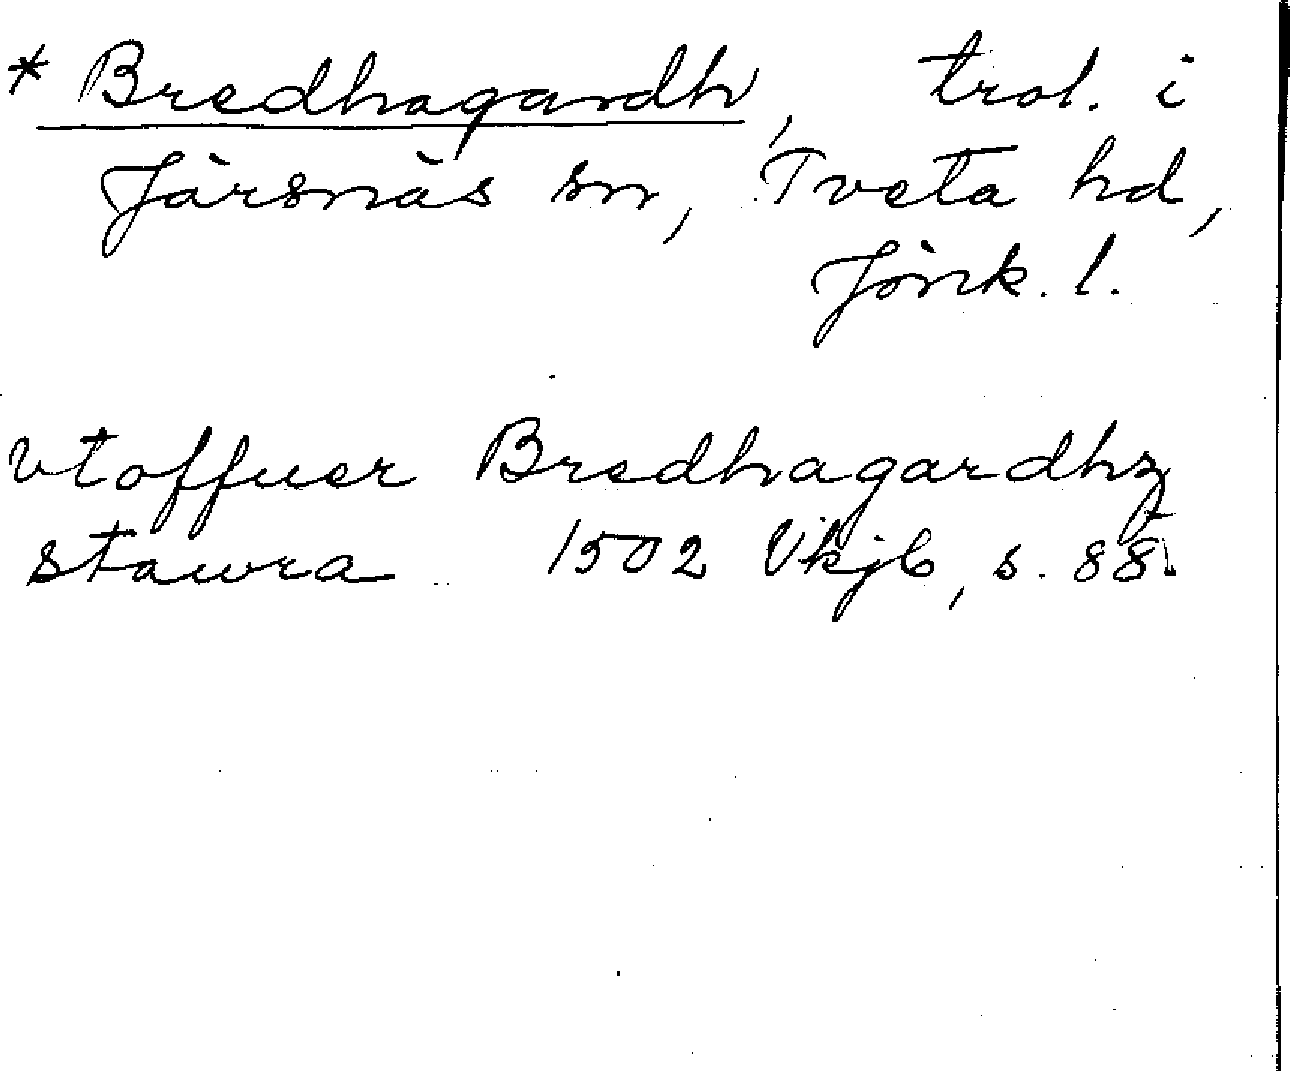 * Bredhagardh, trol. i
Järsnäs sn, Tveta hd,
Jönk. l.
vtoffuer Bredhagardhz
stawra 1502 Vkjb, s. 88.